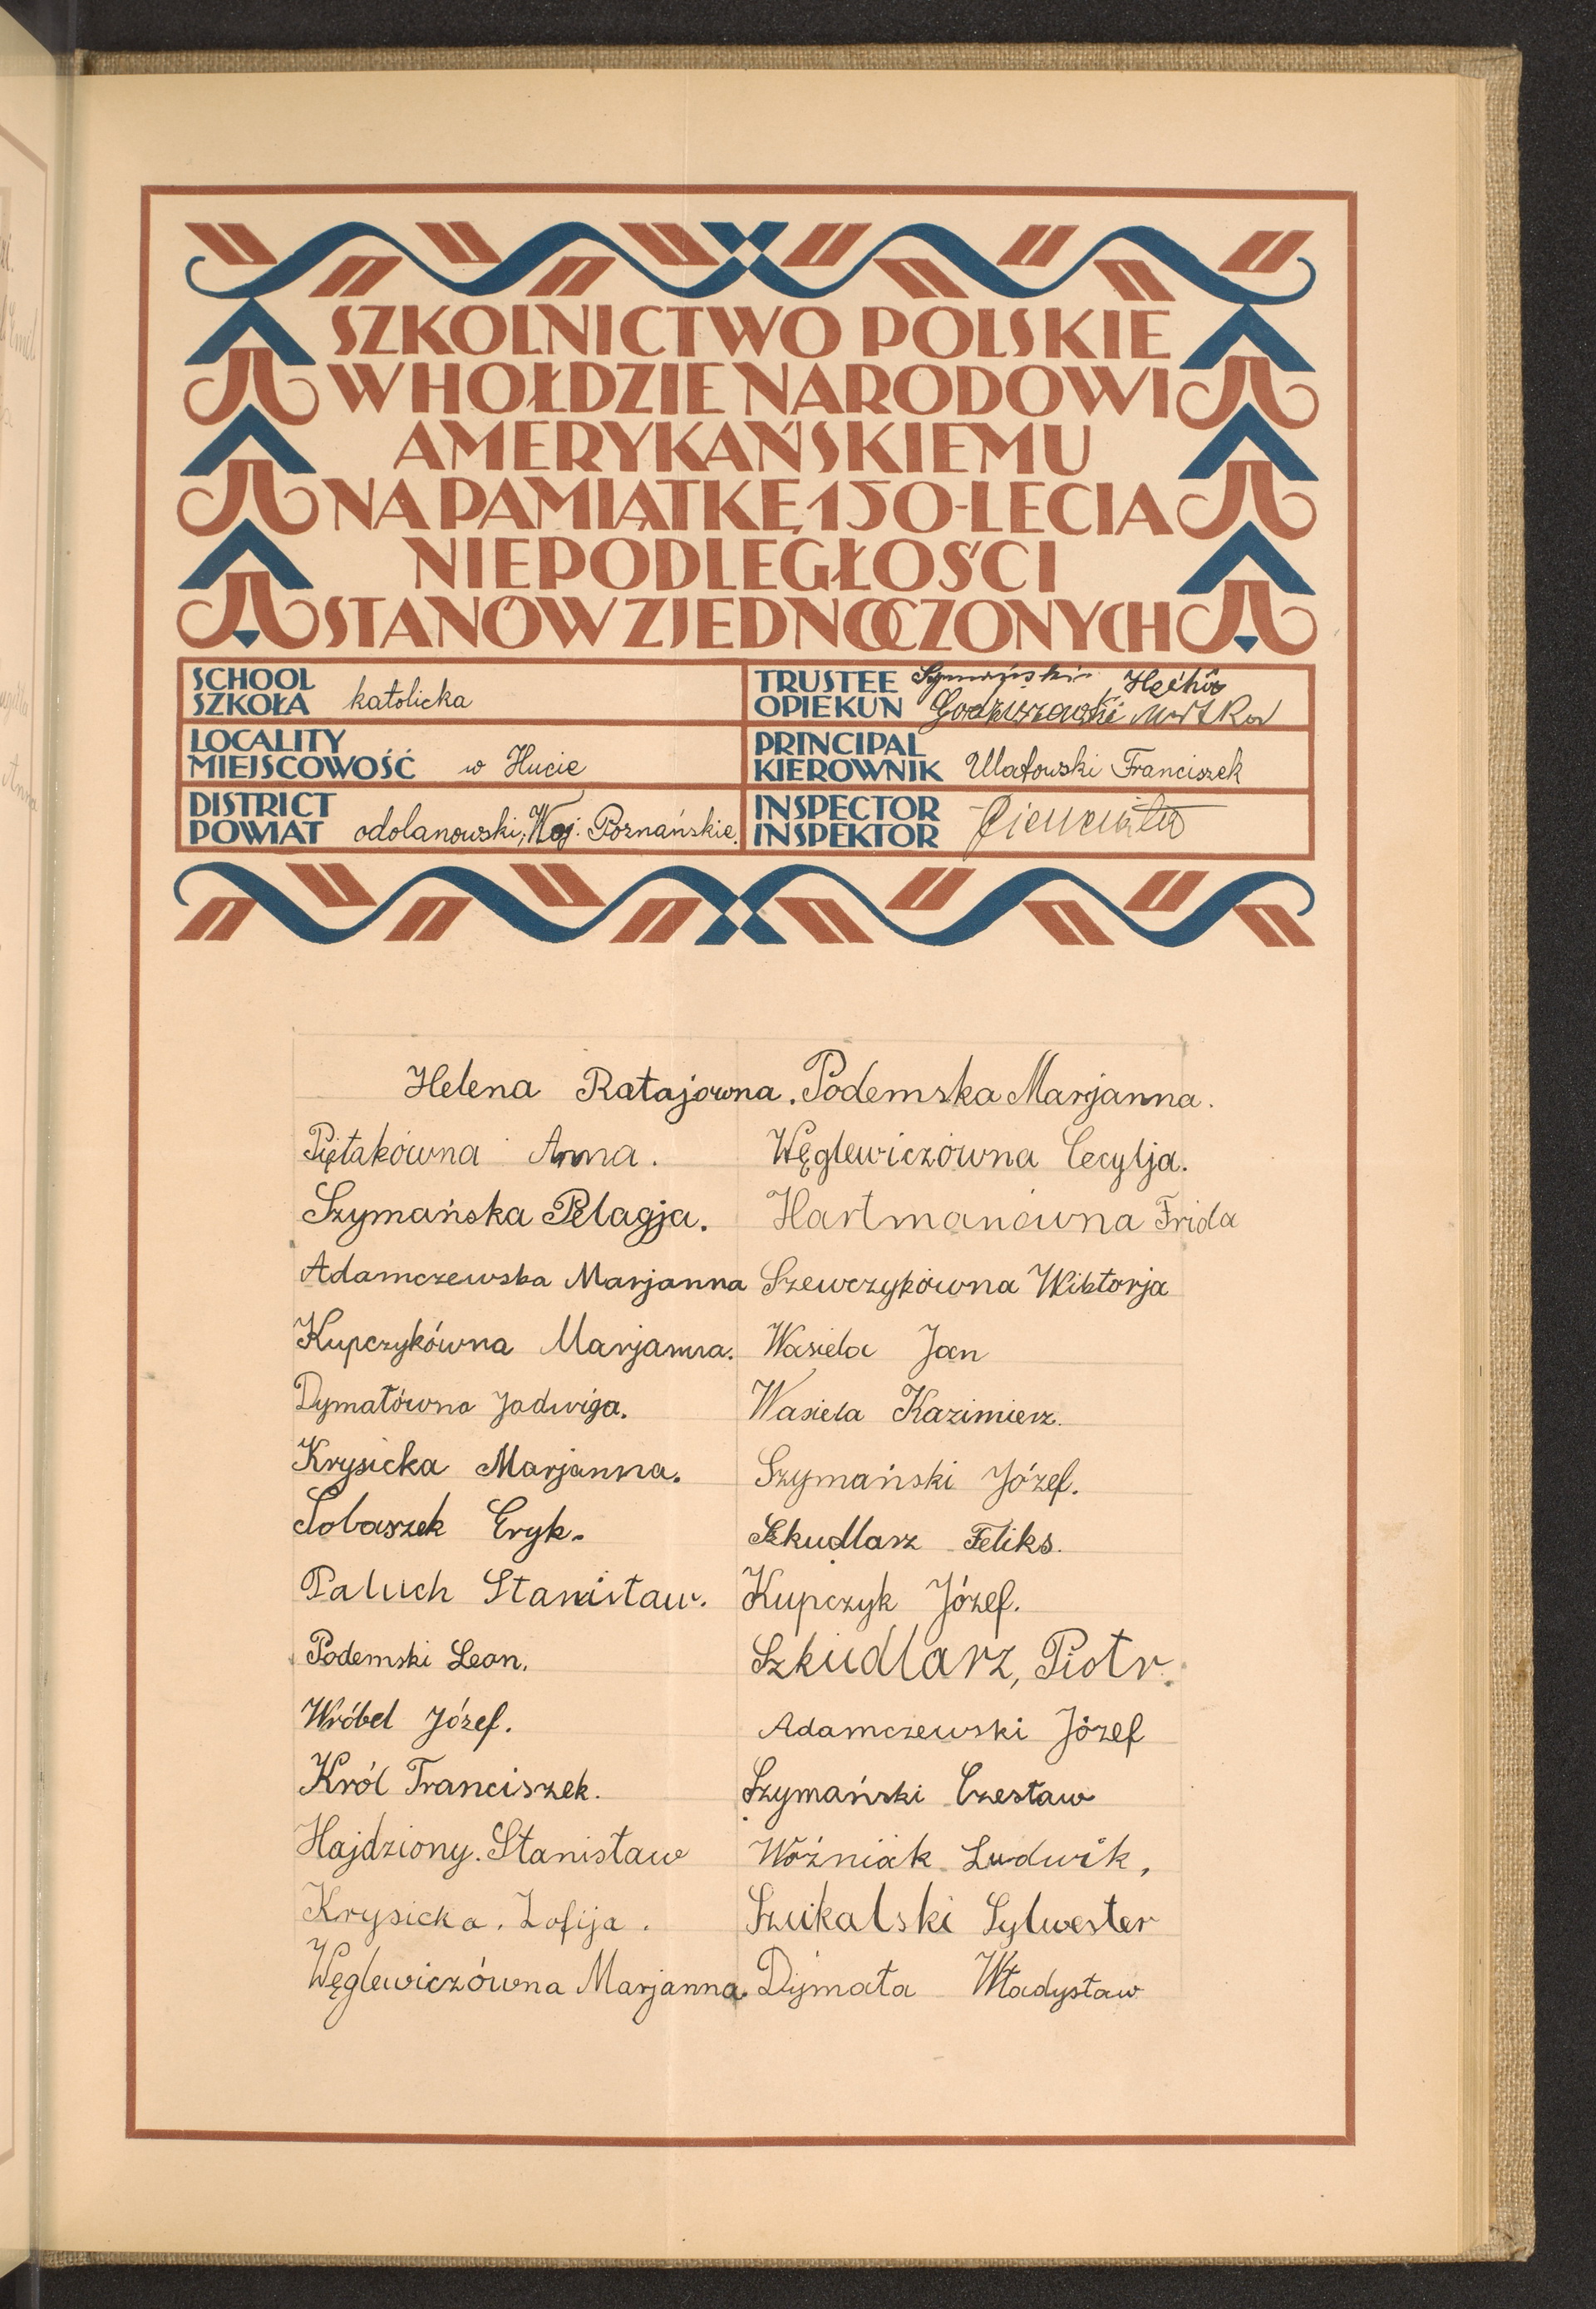 SZKOLNICTWO POLSKIE
W HOŁDZIE NARODOWI
AMERYKAŃSKIEMU
NA PAMIĄTKĘ 150-LECIA
NIEPODLEGŁOŚCI
STANÓW ZJEDNOCZONYCH
SCHOOL
SZKOŁA katolicka
TRUSTEE Szymański
OPIEKUN Godziszewski
LOCALITY
MIEJSCOWOŚĆ w Hucie
PRINCIPAL
KIEROWNIK Ulatowski Franciszek
DISTRICT
POWIAT odolanowski, Woj. Poznańskie.
INSPECTOR
INSPEKTOR
Helena Ratajowna. Podemska Marjanna.
Piętakówna Anna. Węglewiczówna Cecylja.
Szymańska Pelagja. Hartmanówna Frida
Adamczewska Marjanna Szewczykówna Wiktorja
Kupczykówna Marjanna. Wasiela Jan
Dymatówna Jadwiga. Wasiela Kazimierz.
Krysicka Marjanna. Szymański Józef.
Sobaszek Eryk. Szkudlarz Feliks.
Paluch Stanisław. Kupczyk Józef.
Podemski Leon. Szkudlarz, Piotr.
Wróbel Józef. Adamczewski Józef
Król Franciszek. Szymański Czesław
Hajdziony. Stanisław Woźniak Ludwik,
Krysicka. Zofija. Szukalski Sylwester
Węglewiczówna Marjanna. Dymata Władysław